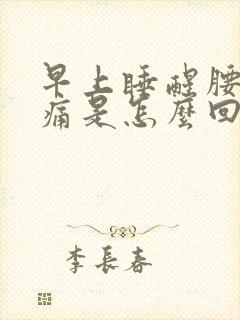 早上睡醒腰
痛是怎麼回
李長春